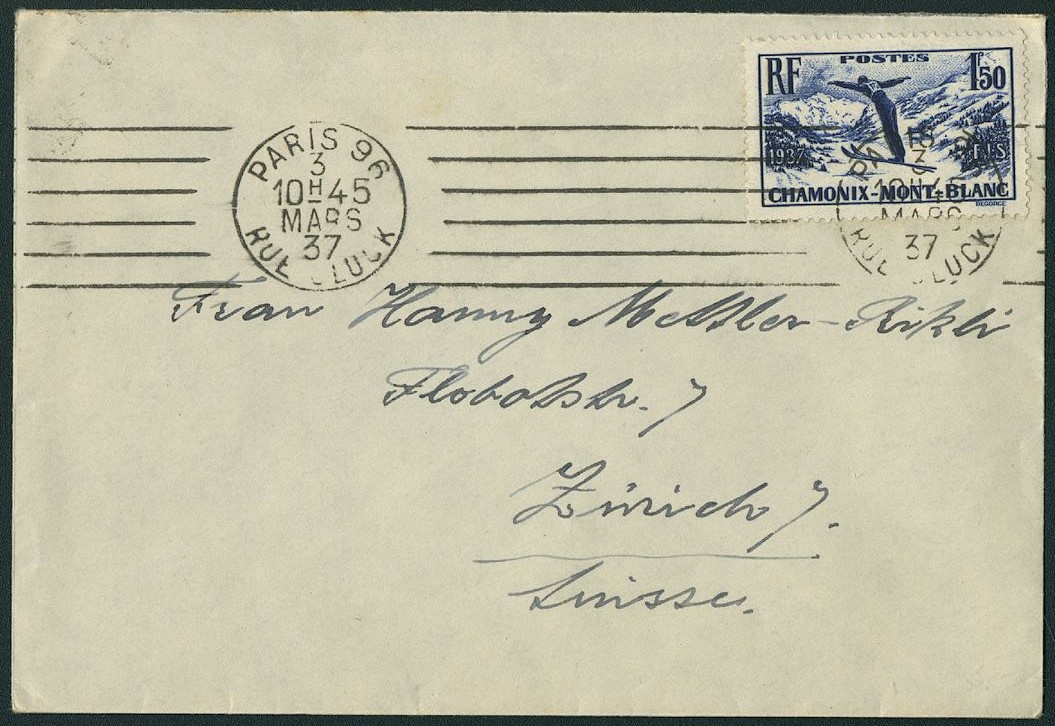 PARIS 96
3
10H45
MARS
37
RUE GLUCK
RF POSTES 1f50
1937 FIS
CHAMONIX-MONT-BLANC
DEGORCE
3
10H45
MARS
37
RUE GLUCK
Frau Hanny Mettler-Rikli
7
Zürich 7.
Suisse.